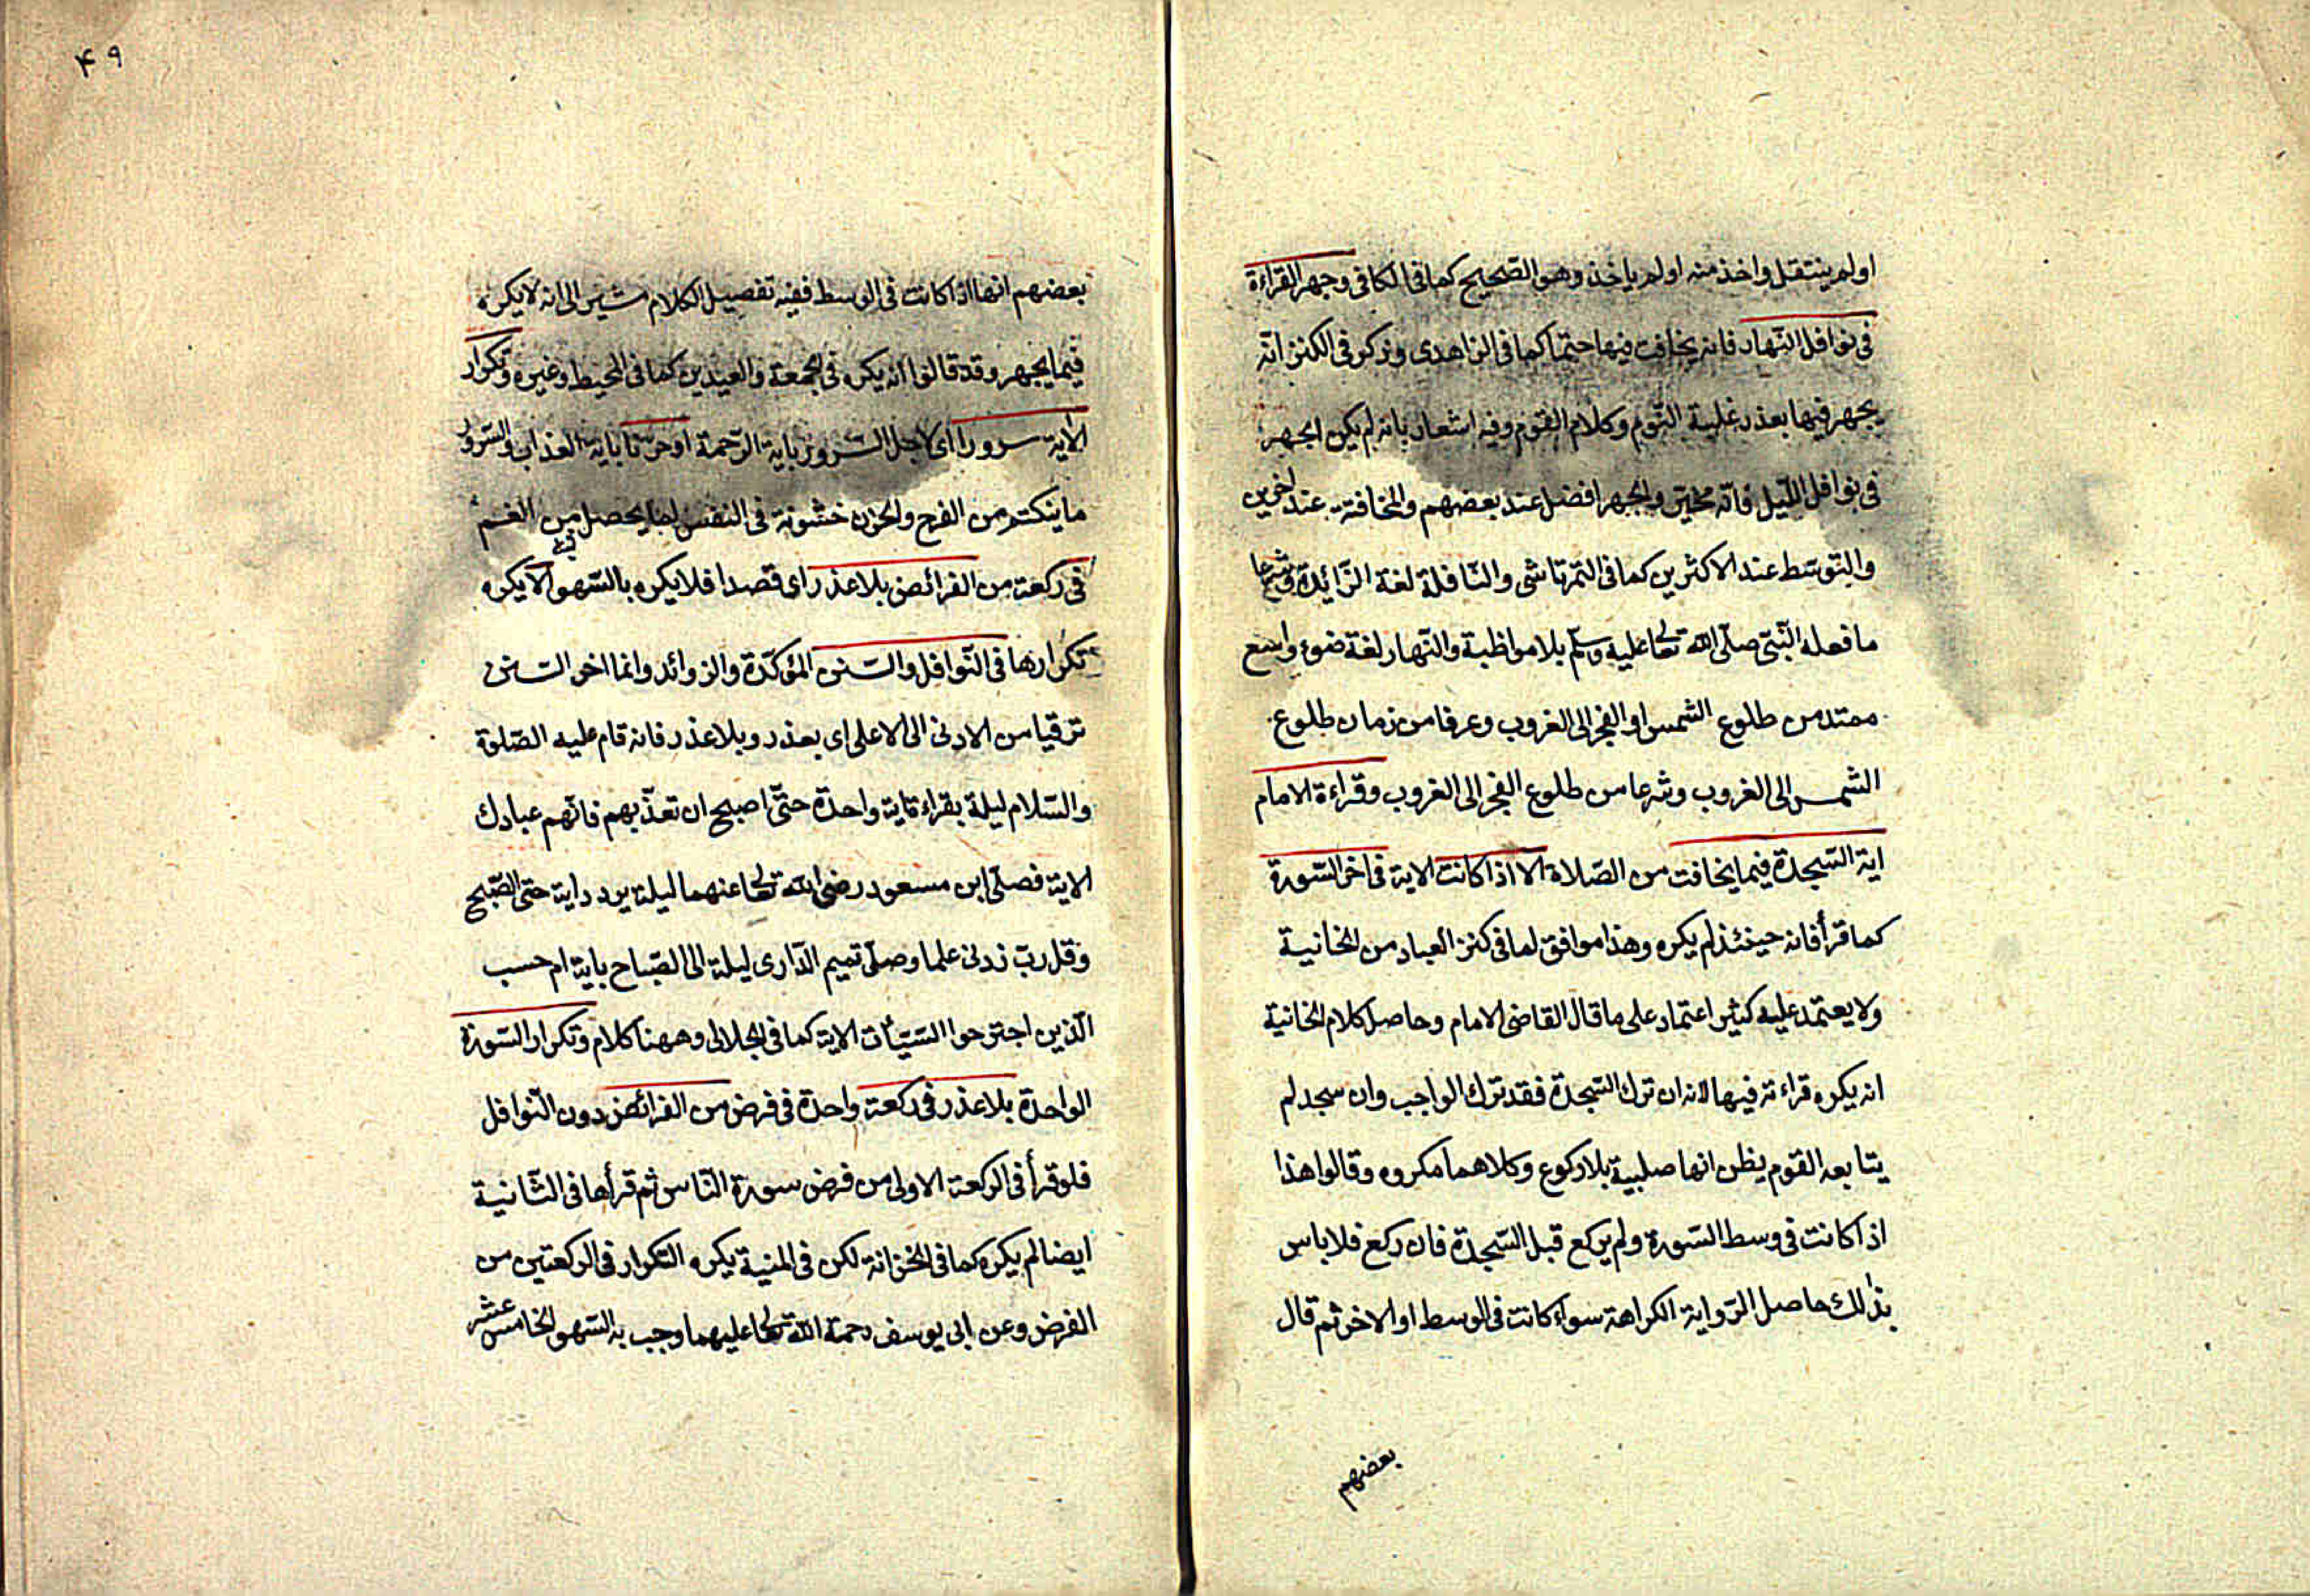 او لم ينتقل واخذ منه او لم ياخذ وهو الصّحيح كما فى الكافى وجهر القراءة
فى نوافل النّهار فانه يخافت فيها حتما كما فى الزاهدى وذكر فى الكنز انّه
يجهر فيها بعذر غلبة النّوم وكلام القوم وفيه اشعار بانه لم يكن الجهر
فى نوافل اللّيل فانّه مخيّر والجهر افضل عند بعضهم والمخافتة عند اخرين
والتوسّط عند الاكثرين كما فى التمرتاشى والنّافلة لغة الزّائدة وشرعا
ما فعله النّبىّ صلّى اللّه تعا عليه وسلّم بلا مواظبة والنّهار لغة ضوء واسع
ممتد من طلوع الشمس او الفجر الى الغروب وعرفا من زمان طلوع
الشّمس الى الغروب وشرعا من طلوع الفجر الى الغروب وقراءة الامام
اية السّجدة فيما يخافت من الصّلاة الا اذا كانت الاية فى اخر السّورة
كما قرأ فانه حينئذ لم يكره وهذا موافق لما فى كنز العباد من الخانية
ولا يعتمد عليه كثير اعتماد على ما قال القاضى الامام وحاصل كلام الخانية
انه يكره قراءته فيها لانه ان ترك السّجدة فقد ترك الواجب وان سجد لم
يتابعه القوم يظن انها صلبية بلا ركوع وكلاهما مكروه وقالوا هذا
اذا كانت فى وسط السّورة ولم يركع قبل السّجدة فان ركع فلا باس
بذلك حاصل الرّواية الكراهة سواء كانت فى الوسط او الاخر ثم قال
بعضهم
۴۹
بعضهم انها اذا كانت فى الوسط ففيه تفصيل الكلام مشير الى انه لا يكره
فيما يجهر وقد قالوا انه يكره فى الجمعة والعيدين كما فى المحيط وغيره وتكرار
الاية سرورا اى لاجل السرور باية الرّحمة او حزنا باية العذاب والسّرور
ما ينكتم من الفرح والحزن خشونة فى النفس لما يحصل من الغم
فى ركعة من الفرائض بلا عذر اى قصدا فلا يكره بالسّهو لا يكره
تكرارها فى النّوافل والسنن المؤكّدة والزوائد وانما اخر السنن
ترقيا من الادنى الى الاعلى اى بعذر وبلا عذر فانه قام عليه الصّلوة
والسّلام ليلة بقراءة اية واحدة حتّى اصبح ان تعذّبهم فانّهم عبادك
الاية فصلّى ابن مسعود رضى اللّه تعا عنهما ليلة يردد اية حتى الصّبح
وقل ربّ زدنى علما وصلّى تميم الدّارى ليلة الى الصّباح باية ام حسب
الّذين اجترحوا السّيّأت الاية كما فى الجلالى وههنا كلام وتكرار السّورة
الواحدة بلا عذر فى ركعة واحدة فى فرض من الفرائض دون النّوافل
فلو قرأ فى الركعة الاولى من فرض سورة النّاس ثم قرأها فى الثّانية
ايضا لم يكره كما فى الخزانة لكن فى المنية يكره التكرار فى الركعتين من
الفرض وعن ابى يوسف رحمة اللّه تعا عليهما وجب به السّهو الخامس عشر